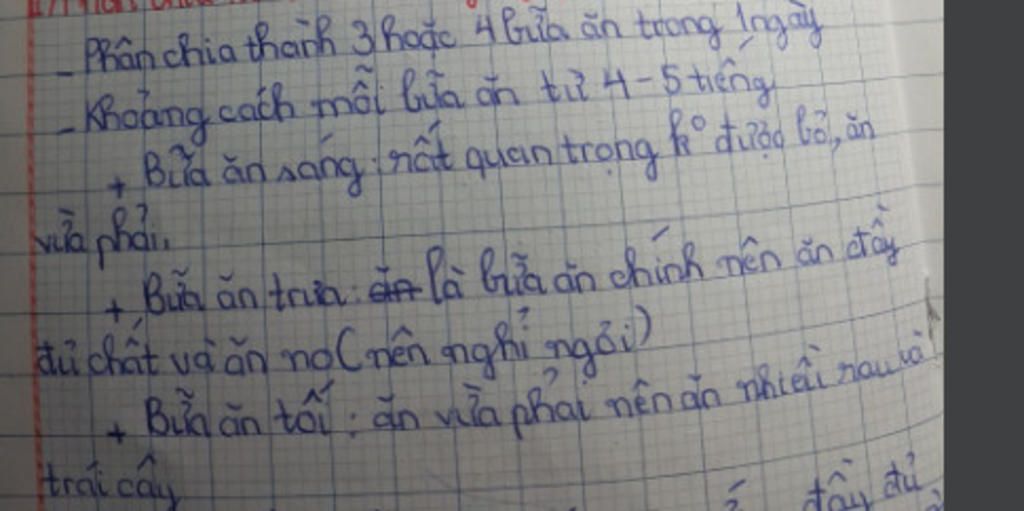 - Phân chia thành 3 hoặc 4 bữa ăn trong 1 ngày
- Khoảng cách mỗi bữa ăn từ 4 - 5 tiếng
+ Bữa ăn sáng: rất quan trọng k° được bỏ, ăn
vừa phải.
+ Bữa ăn trưa: ăn là bữa ăn chính nên ăn đầy
đủ chất và ăn no (nên nghỉ ngơi)
+ Bữa ăn tối: ăn vừa phải nên ăn nhiều rau và
trái cây
đầy đủ